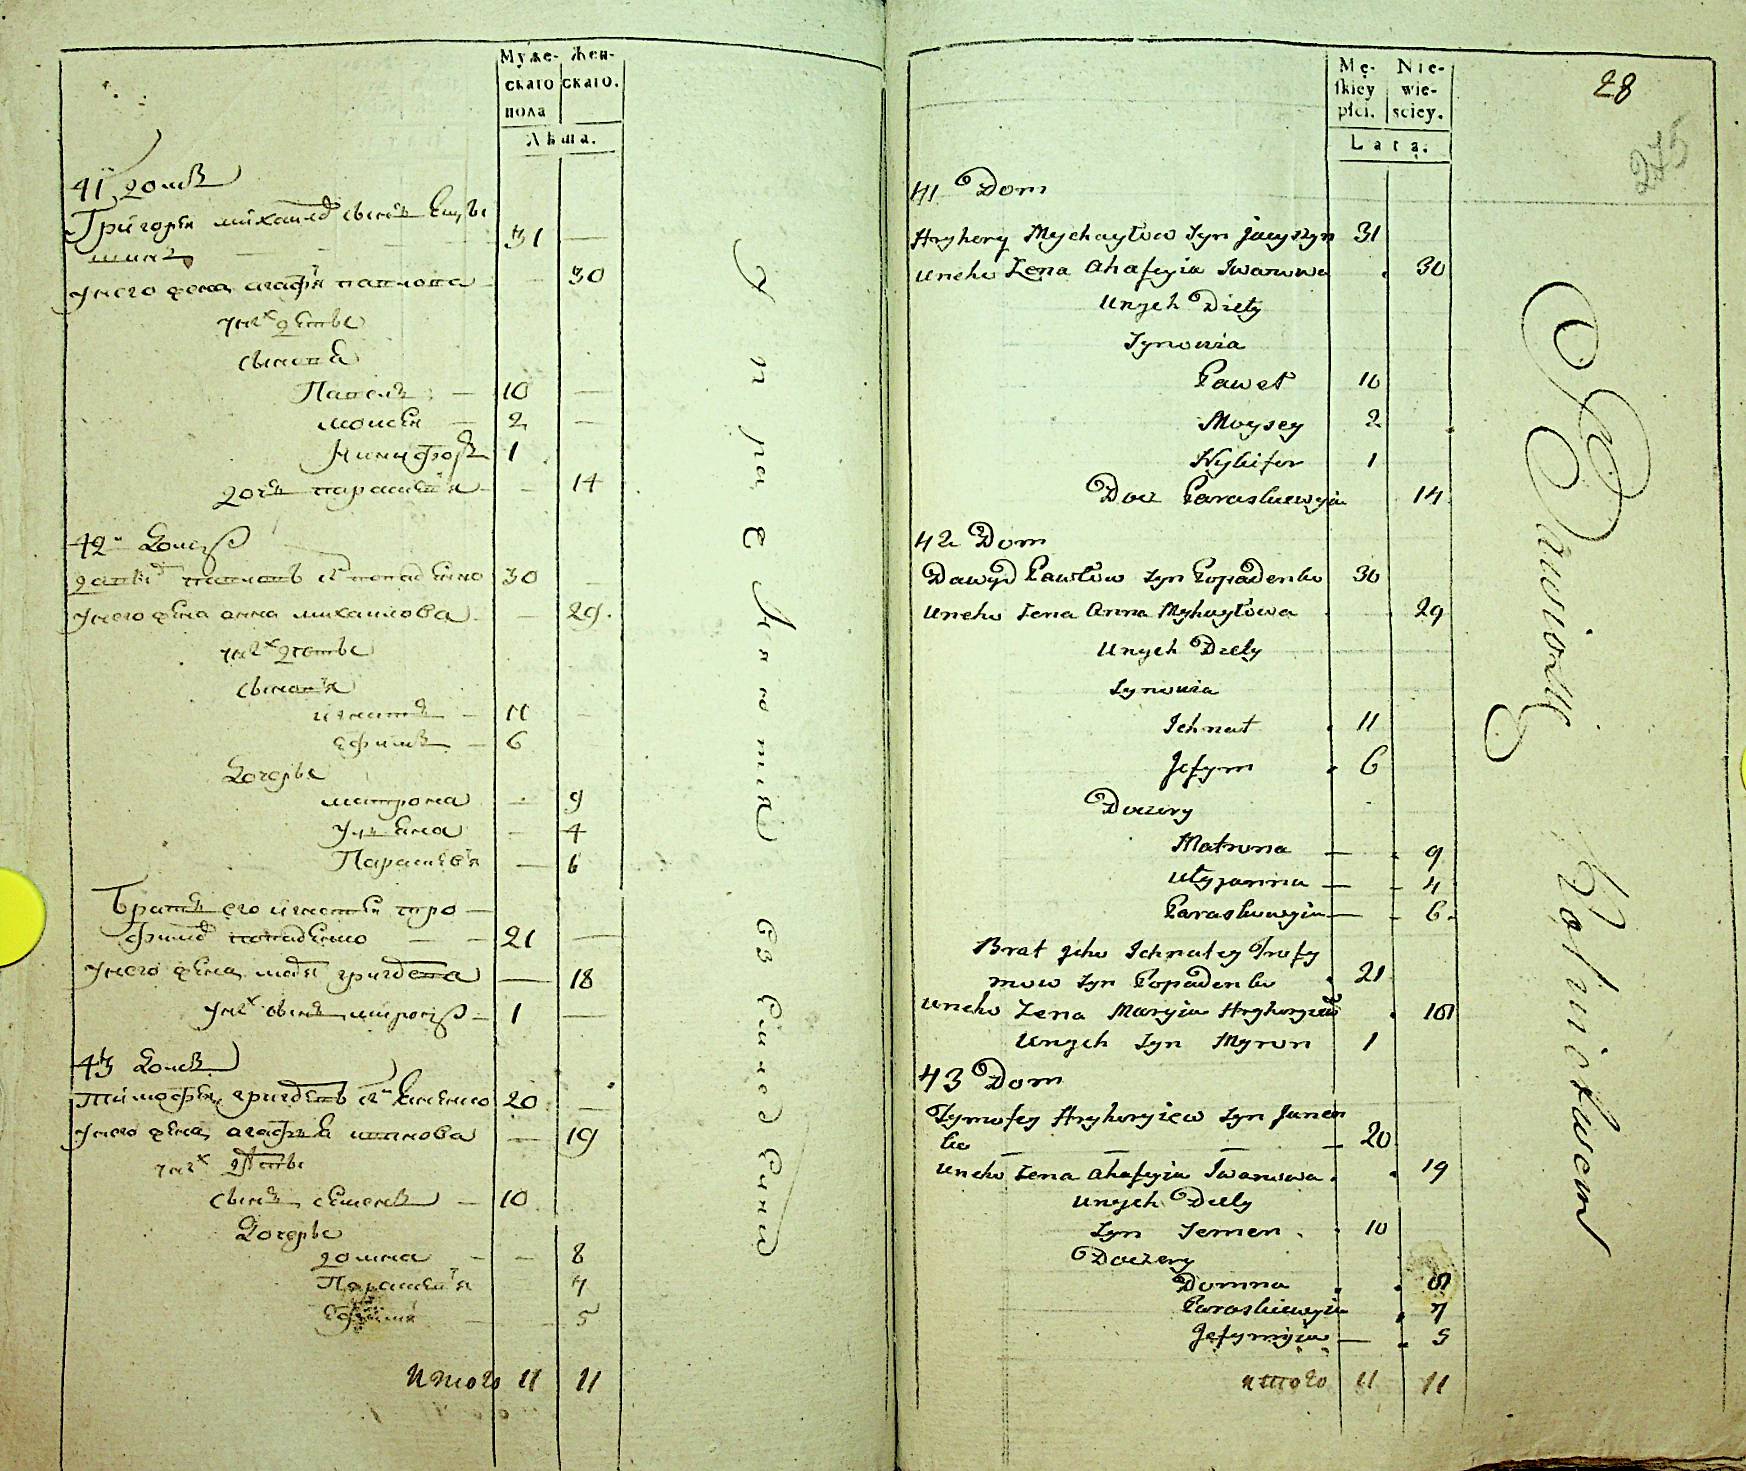 Муже- Жен-
скаго скаго.
пола
Лѣта.
41 домъ
Григорiй михаиловъ сынъ
31
у него жена агафiя 30
у них дети
сыновя
Павелъ 10
моисей 2
Никифоръ 1
дочь параскевiя 14
42 Домъ
давидъ павловъ сынъ попаденко 30
у него жена анна михайлова 29.
у них дети
сыновя
игнатъ 11
ефимъ 6
Дочеры
матрона 9
улiяна 4
Параскевiя 6
Братъ его игнатiй тро
фимовъ попаденко 21
у него жена марiя григорева 18
у них сынъ миронъ 1
43 Домъ
тимофей григоревъ сынъ 20
у него жена агафiя иванова 19
у них дети
сынъ семенъ 10
Дочеры
домна 8
Параскевiя 7
Ефимiя 5
итого 11 11
Mę- Nie-
skiey wie-
płci. sciey.
Lata.
28
275
41 Dom
Hryhory Mychayłow Syn Jacyszyn 31
uneho Zena Ahafyia Iwanowa 30
Unych Diety
Synowia
Paweł 10
Moysey 2
Nykifor 1
Docz Paraskiewyia 14
42 Dom
Dawyd Pawłow Syn Popadenko 30
uneho Zena Anna Myhayłowa 29
Unych Diety
Synowia
Ichnat 11
Jefym 6
Doczery
Matrona 9
Ulyjanna 4
Paraskiewyia 6
Brat jeho Ichnatey Trofy
mow Syn Popadenko 21
uneho Zena Maryia Hryhoryiewa 18
Unych Syn Myron 1
43 Dom
Tymofey Hryhoryiew Syn Janen
ko 20
uneho Zena Ahafyia Iwanowa 19
Unych Diety
Syn Semen 10
Doczery
Domna 8
Paraskiewyia 7
Jefymyia 5
итого 11 11